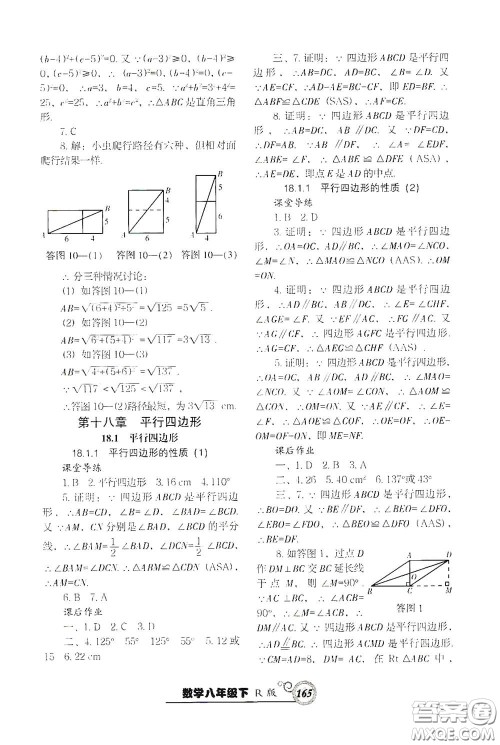 (b-4)²+(c-5)²=0. 又∵(a-3)²≥0,
(b-4)²≥0, (c-5)²≥0, ∴(a-3)²=0,
(b-4)²=0, (c-5)²=0. ∴a=3, b=4, c=5. ∵a²+b²=3²+4²=
25, c²=25, ∴a²+b²=c², ∴△ABC是直角三角
形.
7. C
8. 解: 小虫爬行路径有六种, 但相对面
爬行结果一样.
A 6 4 B 5
A 4 B 5 6
A 6 B 5 4
答图 10—(1) 答图 10—(2) 答图 10—(3)
∴分三种情况讨论:
(1) 如答图 10—(1)
AB=√(6+4)²+5²=√125=5√5.
(2) 如答图 10—(2)
AB=√6²+(5+4)²=√117=3√13.
(3) 如答图 10—(3)
AB=√4²+(5+6)²=√137.
∵√117<√125<√137,
∴答图 10—(2)路径最短, 为 3√13 cm.
第十八章 平行四边形
18.1 平行四边形
18.1.1 平行四边形的性质 (1)
课堂导练
1. B 2. 平行四边形 3. 16 cm 4. 110°
5. 证明: ∵四边形 ABCD 是平行四边
形, ∴AB=CD, ∠B=∠D, ∠BAD=∠BCD.
又∵AM, CN 分别是∠BAD, ∠BCD 的平分
线, ∴∠BAM=1/2∠BAD, ∠DCN=1/2∠BCD,
∴∠BAM=∠DCN. ∴△ABM≌△CDN (ASA),
∴AM=CN.
6. B 7. A
课后作业
一、1. D 2. C 3. D
二、4. 125° 55° 125° 55° 5. 12 或
15 6. 22 cm
三、7. 证明: ∵四边形 ABCD 是平行四边
形, ∴AB=DC, AD=BC, ∠B=∠D. 又
∵AE=CF, ∴AB-AE=CD-CF, 即 BE=
DF. ∴△ADF≌△CBE (SAS), ∴AF=CE.
8. 证明: ∵四边形 ABCD 是平行四边
形, ∴AB=DC, AB∥DF. 又∵DF=DC,
∴DF=AB. ∵AB∥DF, ∴∠A=∠EDF,
∠ABE=∠F, ∴△ABE≌△DFE (ASA),
∴AE=DE, 即点 E 是 AD 的中点.
18.1.1 平行四边形的性质 (2)
课堂导练
1. B 2. D
3. 证明: ∵四边形 ABCD 是平行四边形,
∴OA=OC, AD∥BC, ∴∠MAO=∠NCO,
∠M=∠N, ∴△MAO≌△NCO (AAS). ∴OM
=ON.
4. 证明: ∵四边形 ABCD 是平行四边形,
∴OA=OC, AD∥BC, ∴∠MAO=∠NCO,
∠AEG=∠F. 又∵EF∥AC, ∴FG∥AC. 又
∵AG∥CF, ∴四边形 AGFC 是平行四边形.
∴AG=CF, ∴△AEG≌△CHF (AAS).
5. 证明: ∵四边形 ABCD 是平行四边形,
∴AB∥CD, OA=OC, ∴∠EAO=∠FCO,
又∵∠AOE=∠COF, ∴△AOE≌△COF, ∴OE
=OF. 又∵EM=FN, ∴OE-EM=OF-FN,
∴OM=ON, 即 ME=NF.
课后作业
一、1. D 2. B 3. D
二、4. 26 5. 40 cm² 6. 137°或 43°
三、7. 证明: ∵四边形 ABCD 是平行四边形,
∴BO=DO. 又∵BE⊥AC, DF⊥AC, ∴∠BEO=
∠DFO=90°. 又∵∠BOE=∠DOF, ∴△BOE≌△DOF,
∴BE=DF.
8. 如答图 1, 过点 D
作 DM⊥BC 交 BC 延长线
于点 M, 则∠M=90°.
∵∠ACB=90°, ∴
A D O B C M
答图 1
DM∥AC. 又∵四边形 ABCD 是平行四边形,
∴DM≌AC. ∴四边形 ACMD 是平行四边形.
∴CM=AD=8, DM=AC, 在 Rt△ABC 中,
数学八年级下 R 版 165
答案圈
MXQE.COM